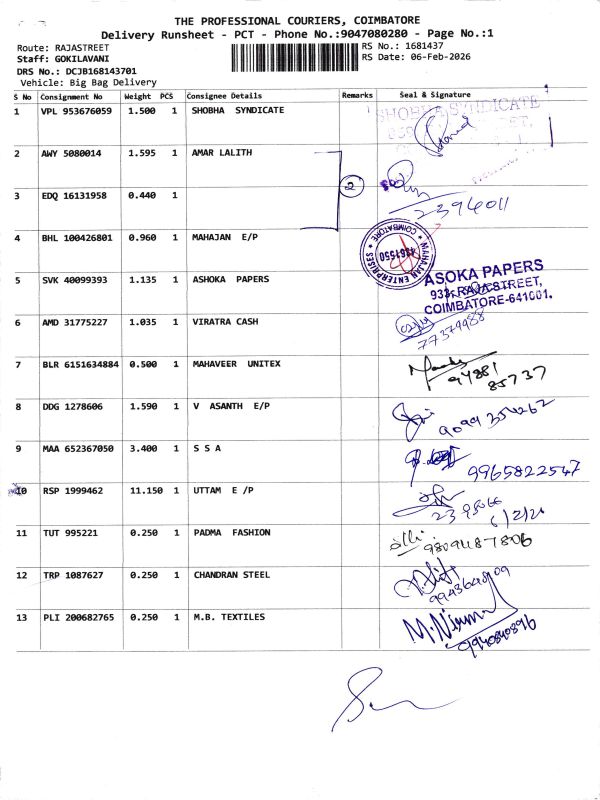 THE PROFESSIONAL COURIERS, COIMBATORE
Delivery Runsheet - PCT - Phone No.:9047080280 - Page No.:1
Route: RAJASTREET
RS No.: 1681437
Staff: GOKILAVANI
RS Date: 06-Feb-2026
DRS No.: DCJB168143701
Vehicle: Big Bag Delivery
S No Consignment No Weight PCS Consignee Details Remarks Seal & Signature
1 VPL 953676059 1.500 1 SHOBHA SYNDICATE
SHOBHA SYNDICATE
2 AWY 5080014 1.595 1 AMAR LALITH
2
3 EDQ 16131958 0.440 1
2394011
4 BHL 100426801 0.960 1 MAHAJAN E/P
MAHAJAN ENTERPRISES COIMBATORE
5 SVK 40099393 1.135 1 ASHOKA PAPERS
ASOKA PAPERS
933, RAJA STREET,
COIMBATORE-641001.
6 AMD 31775227 1.035 1 VIRATRA CASH
77379988
7 BLR 6151634884 0.500 1 MAHAVEER UNITEX
94881
85737
8 DDG 1278606 1.590 1 V ASANTH E/P
9 MAA 652367050 3.400 1 S S A
9965822547
10 RSP 1999462 11.150 1 UTTAM E /P
6/2/26
11 TUT 995221 0.250 1 PADMA FASHION
12 TRP 1087627 0.250 1 CHANDRAN STEEL
13 PLI 200682765 0.250 1 M.B. TEXTILES